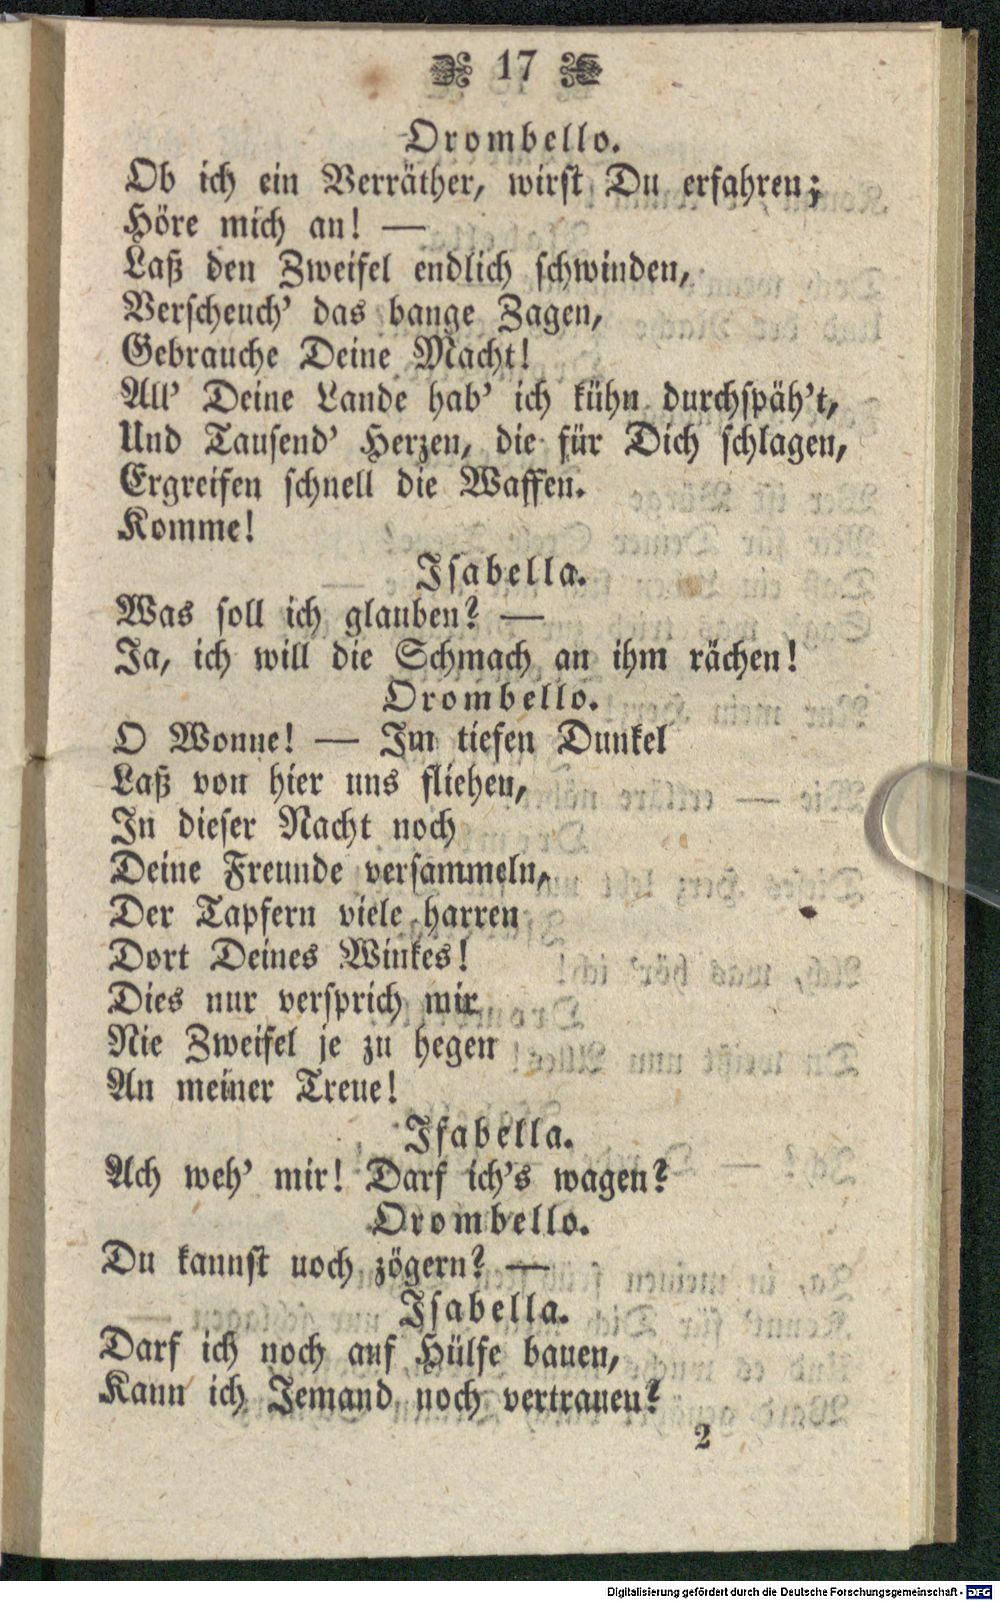 17
Orombello.
Ob ich ein Verräther, wirst Du erfahren;
Höre mich an! —
Laß den Zweifel endlich schwinden,
Verscheuch' das bange Zagen,
Gebrauche Deine Macht!
All' Deine Lande hab' ich kühn durchspäh't,
Und Tausend' Herzen, die für Dich schlagen,
Ergreifen schnell die Waffen.
Komme!
Isabella.
Was soll ich glauben? —
Ja, ich will die Schmach an ihm rächen!
Orombello.
O Wonne! — Im tiefen Dunkel
Laß von hier uns fliehen,
In dieser Nacht noch
Deine Freunde versammeln,
Der Tapfern viele harren
Dort Deines Winkes!
Dies nur versprich mir
Nie Zweifel je zu hegen
An meiner Treue!
Isabella.
Ach weh' mir! Darf ich's wagen?
Orombello.
Du kannst noch zögern? —
Isabella.
Darf ich noch auf Hülfe bauen,
Kann ich Jemand noch vertrauen?
2
Digitalisierung gefördert durch die Deutsche Forschungsgemeinschaft - DFG